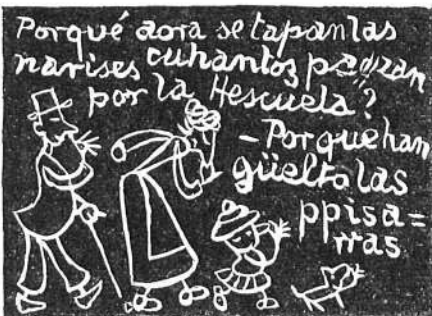 Porqué aora se tapan las
narises cuhantos pazan
por la Hescuela?
- Porquehan
güelto las
ppisa=
rras